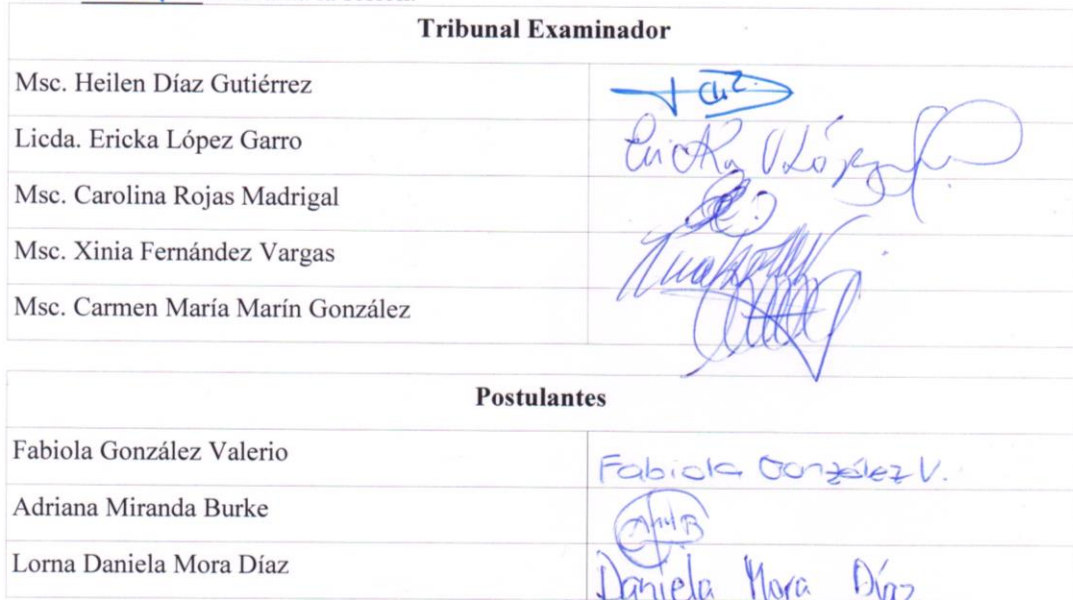 Tribunal Examinador
Msc. Heilen Díaz Gutiérrez
Licda. Ericka López Garro
Ericka V López
Msc. Carolina Rojas Madrigal
Msc. Xinia Fernández Vargas
Msc. Carmen María Marín González
Postulantes
Fabiola González Valerio
Fabiola González V.
Adriana Miranda Burke
AMB
Lorna Daniela Mora Díaz
Daniela Mora Díaz